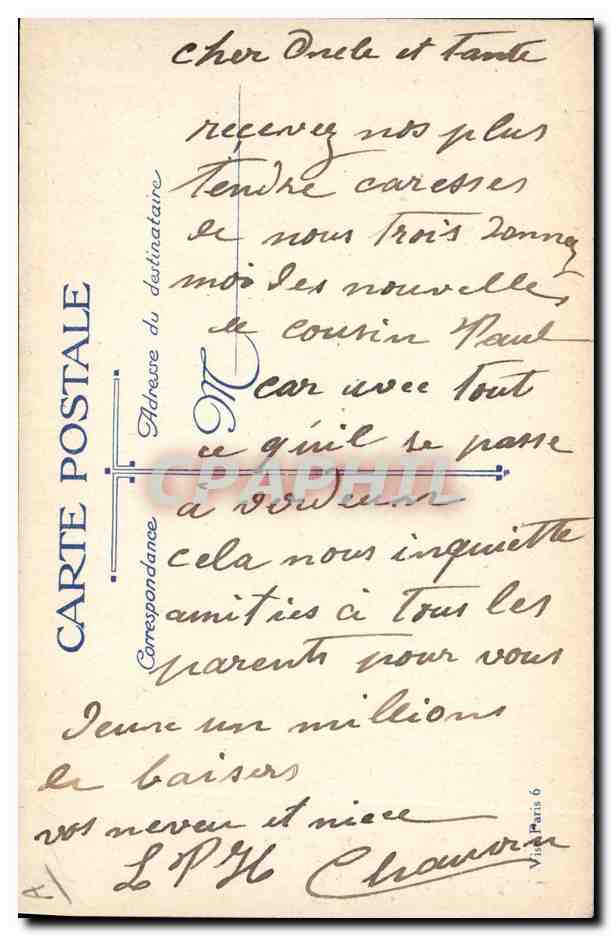 cher Oncle et tante
reçevez nos plus
tendre caresses
de nous trois donnez
moi des nouvelles
de cousin Paul
car avec tout
ce qu'il se passe
à verdun
cela nous inquiette
amitiés à tous les
parents pour vous
deux un millions
de baisers
vos neveu et niece
L P H Chauvin
CARTE POSTALE
Correspondance
Adresse du destinataire
M
CPAPHIL
Visé Paris 6
A/